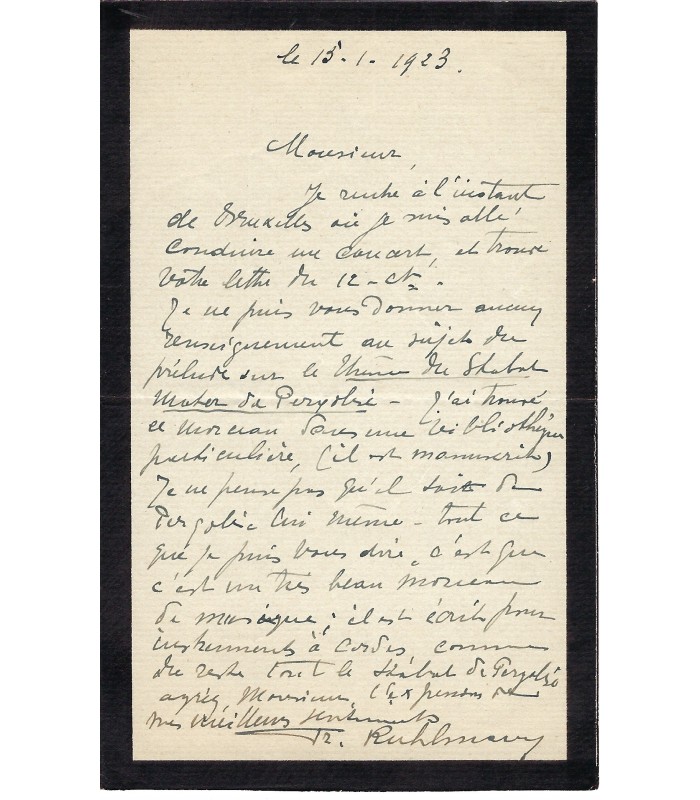 le 15-1-1923.
Monsieur,
Je rentre à l'instant
de Bruxelles où je suis allé
conduire un concert, et trouve
votre lettre du 12-ct.
Je ne puis vous donner aucun
renseignement au sujet du
prélude sur le thème du Stabat
Mater de Pergolèse - J'ai trouvé
ce morceau dans une bibliothèque
particulière, (il est manuscrit)
Je ne pense pas qu'il soit de
Pergolèse lui même - tout ce
que je puis vous dire, c'est que
c'est un très beau morceau
de musique; il est écrit pour
instruments à cordes, comme
du reste tout le Stabat de Pergolèse
agréez, Monsieur, l'expression de
mes meilleurs sentiments
Ruhlmann